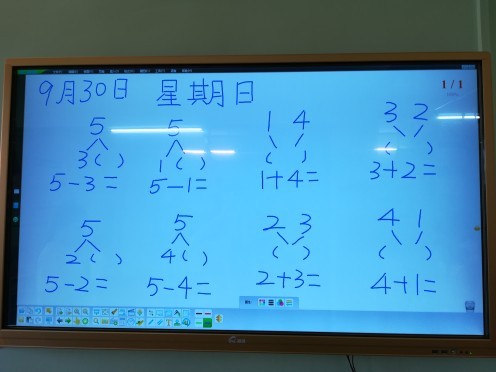 9月30日 星期日
1/1
5 5 1 4 3 2
3( ) 1( ) ( ) ( )
5-3= 5-1= 1+4= 3+2=
5 5 2 3 4 1
2( ) 4( ) ( ) ( )
5-2= 5-4= 2+3= 4+1=